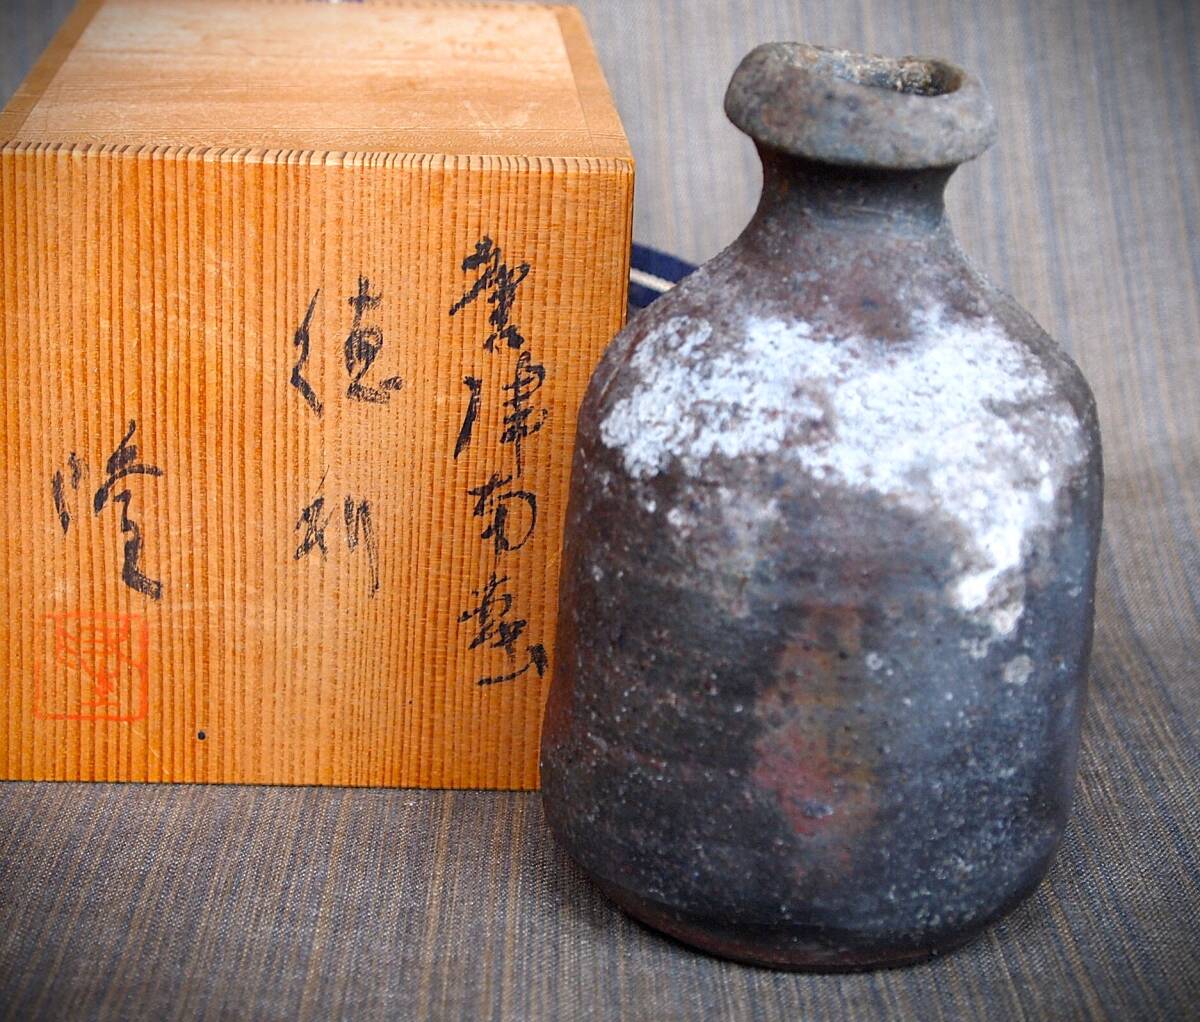 唐津南蛮
徳利
隆